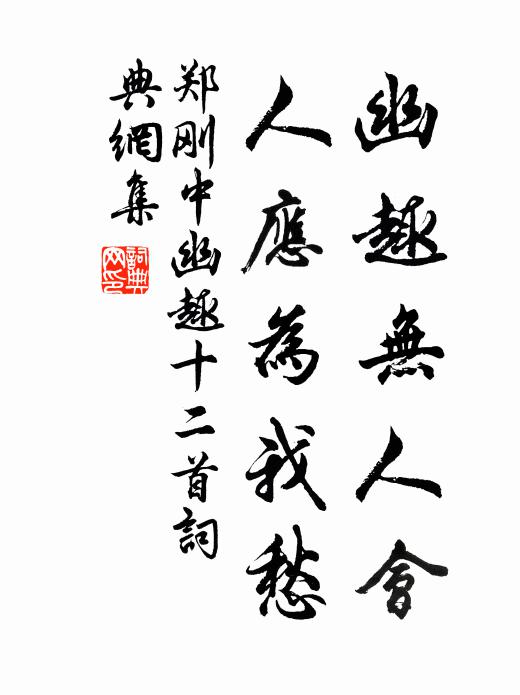 幽趣無人會
人應為我愁
郑刚中幽趣十二首詞
典網集
詞典
网印